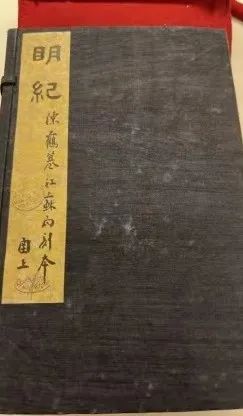 明紀
陳鶴纂江蘇局刻本
函上